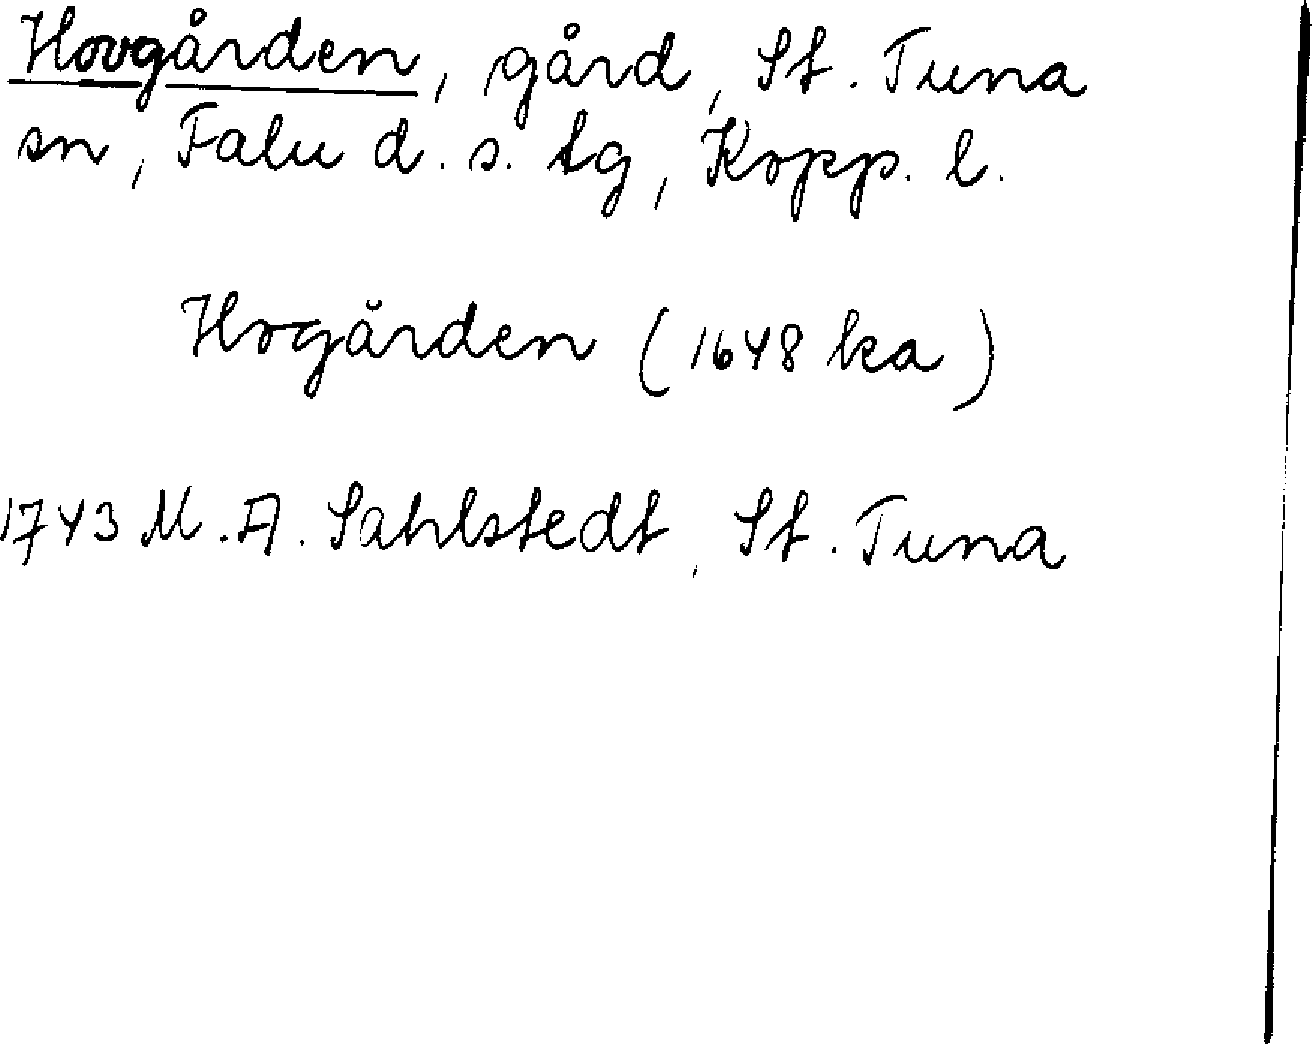 Hovgården, gård, St. Tuna
sn, Falu d. s. tg, Kopp. l.
Hogården (1648 ka)
1743 M. A. Sahlstedt, St. Tuna